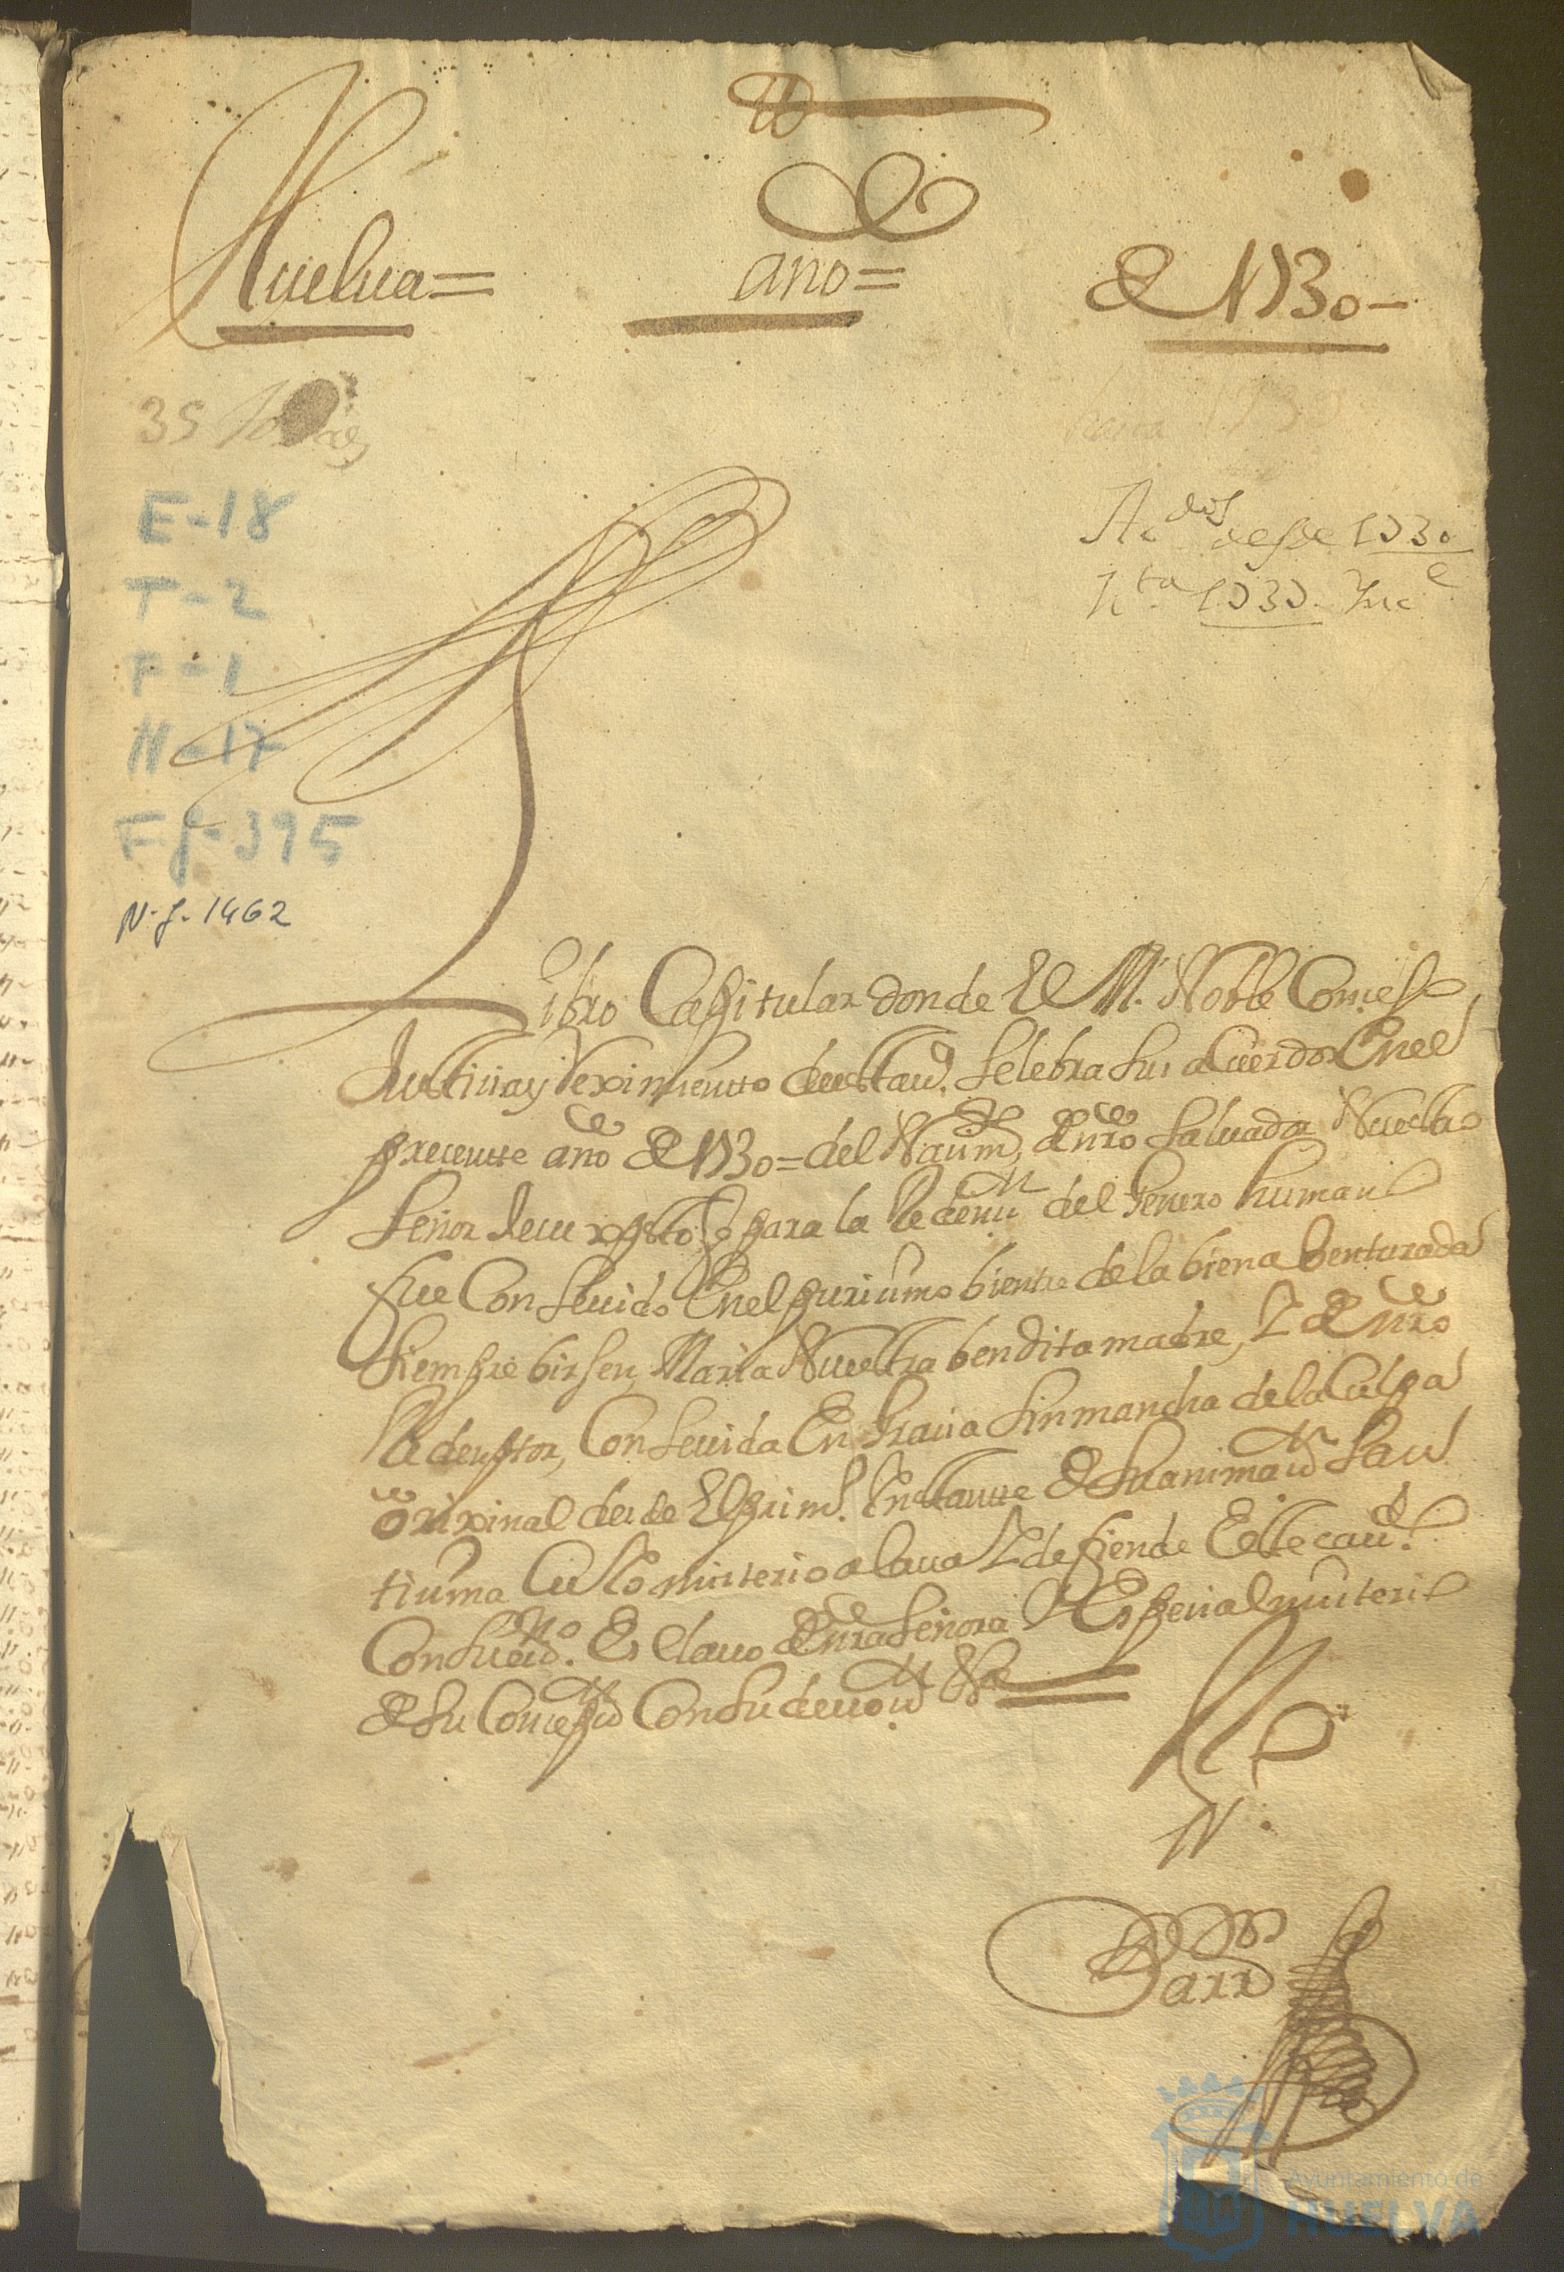 Huelua = año = de 1730 -
35
E-18
T-2
F-1
N-17
Fj-395
N.g. 1462
Ac.dos desde 1730
h.ta 1730
Libro Capitular donde El M. Noble Consejo
Justiuia y reximiento de esta uª. selebra sus acuerdos En el
precente año de 1730 = del Naçim.to de nro saluador Nuestro
señor Jesu xpsto q para la Redenu.n del Jenero humano
fue Conseuido En el purisimo bientre de la biena benturada
siempre birsen, Maria Nuestra bendita madre, I de nro
Redemptor, Conseuida En Grauia sin mancha de la Culpa
orixinal desde El prim.o Instante de su animau.n san
tisima Cuio misterio alaua I defiende Este cau.do
Conse... Esclauo de nra señora I Espeuial misterio
de su Conçepu.n Con su deuou.n &e
Barr
Ayuntamiento de
HUELVA